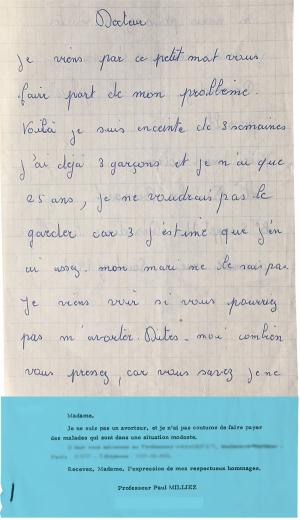 Docteur
Je viens par ce petit mot vous
faire part de mon problème.
Voilà je suis enceinte de 3 semaines
j'ai déjà 3 garçons et je n'ai que
25 ans, je ne voudrais pas le
garder car 3 j'estime que j'en
ai assez. mon mari ne le sais pas.
Je viens voir si vous pourriez
pas m'avorter. Dites-moi combien
vous prenez, car vous savez je ne
Madame,
Je ne suis pas un avorteur, et je n'ai pas coutume de faire payer
des malades qui sont dans une situation modeste.
Recevez, Madame, l'expression de mes respectueux hommages.
Professeur Paul MILLIEZ